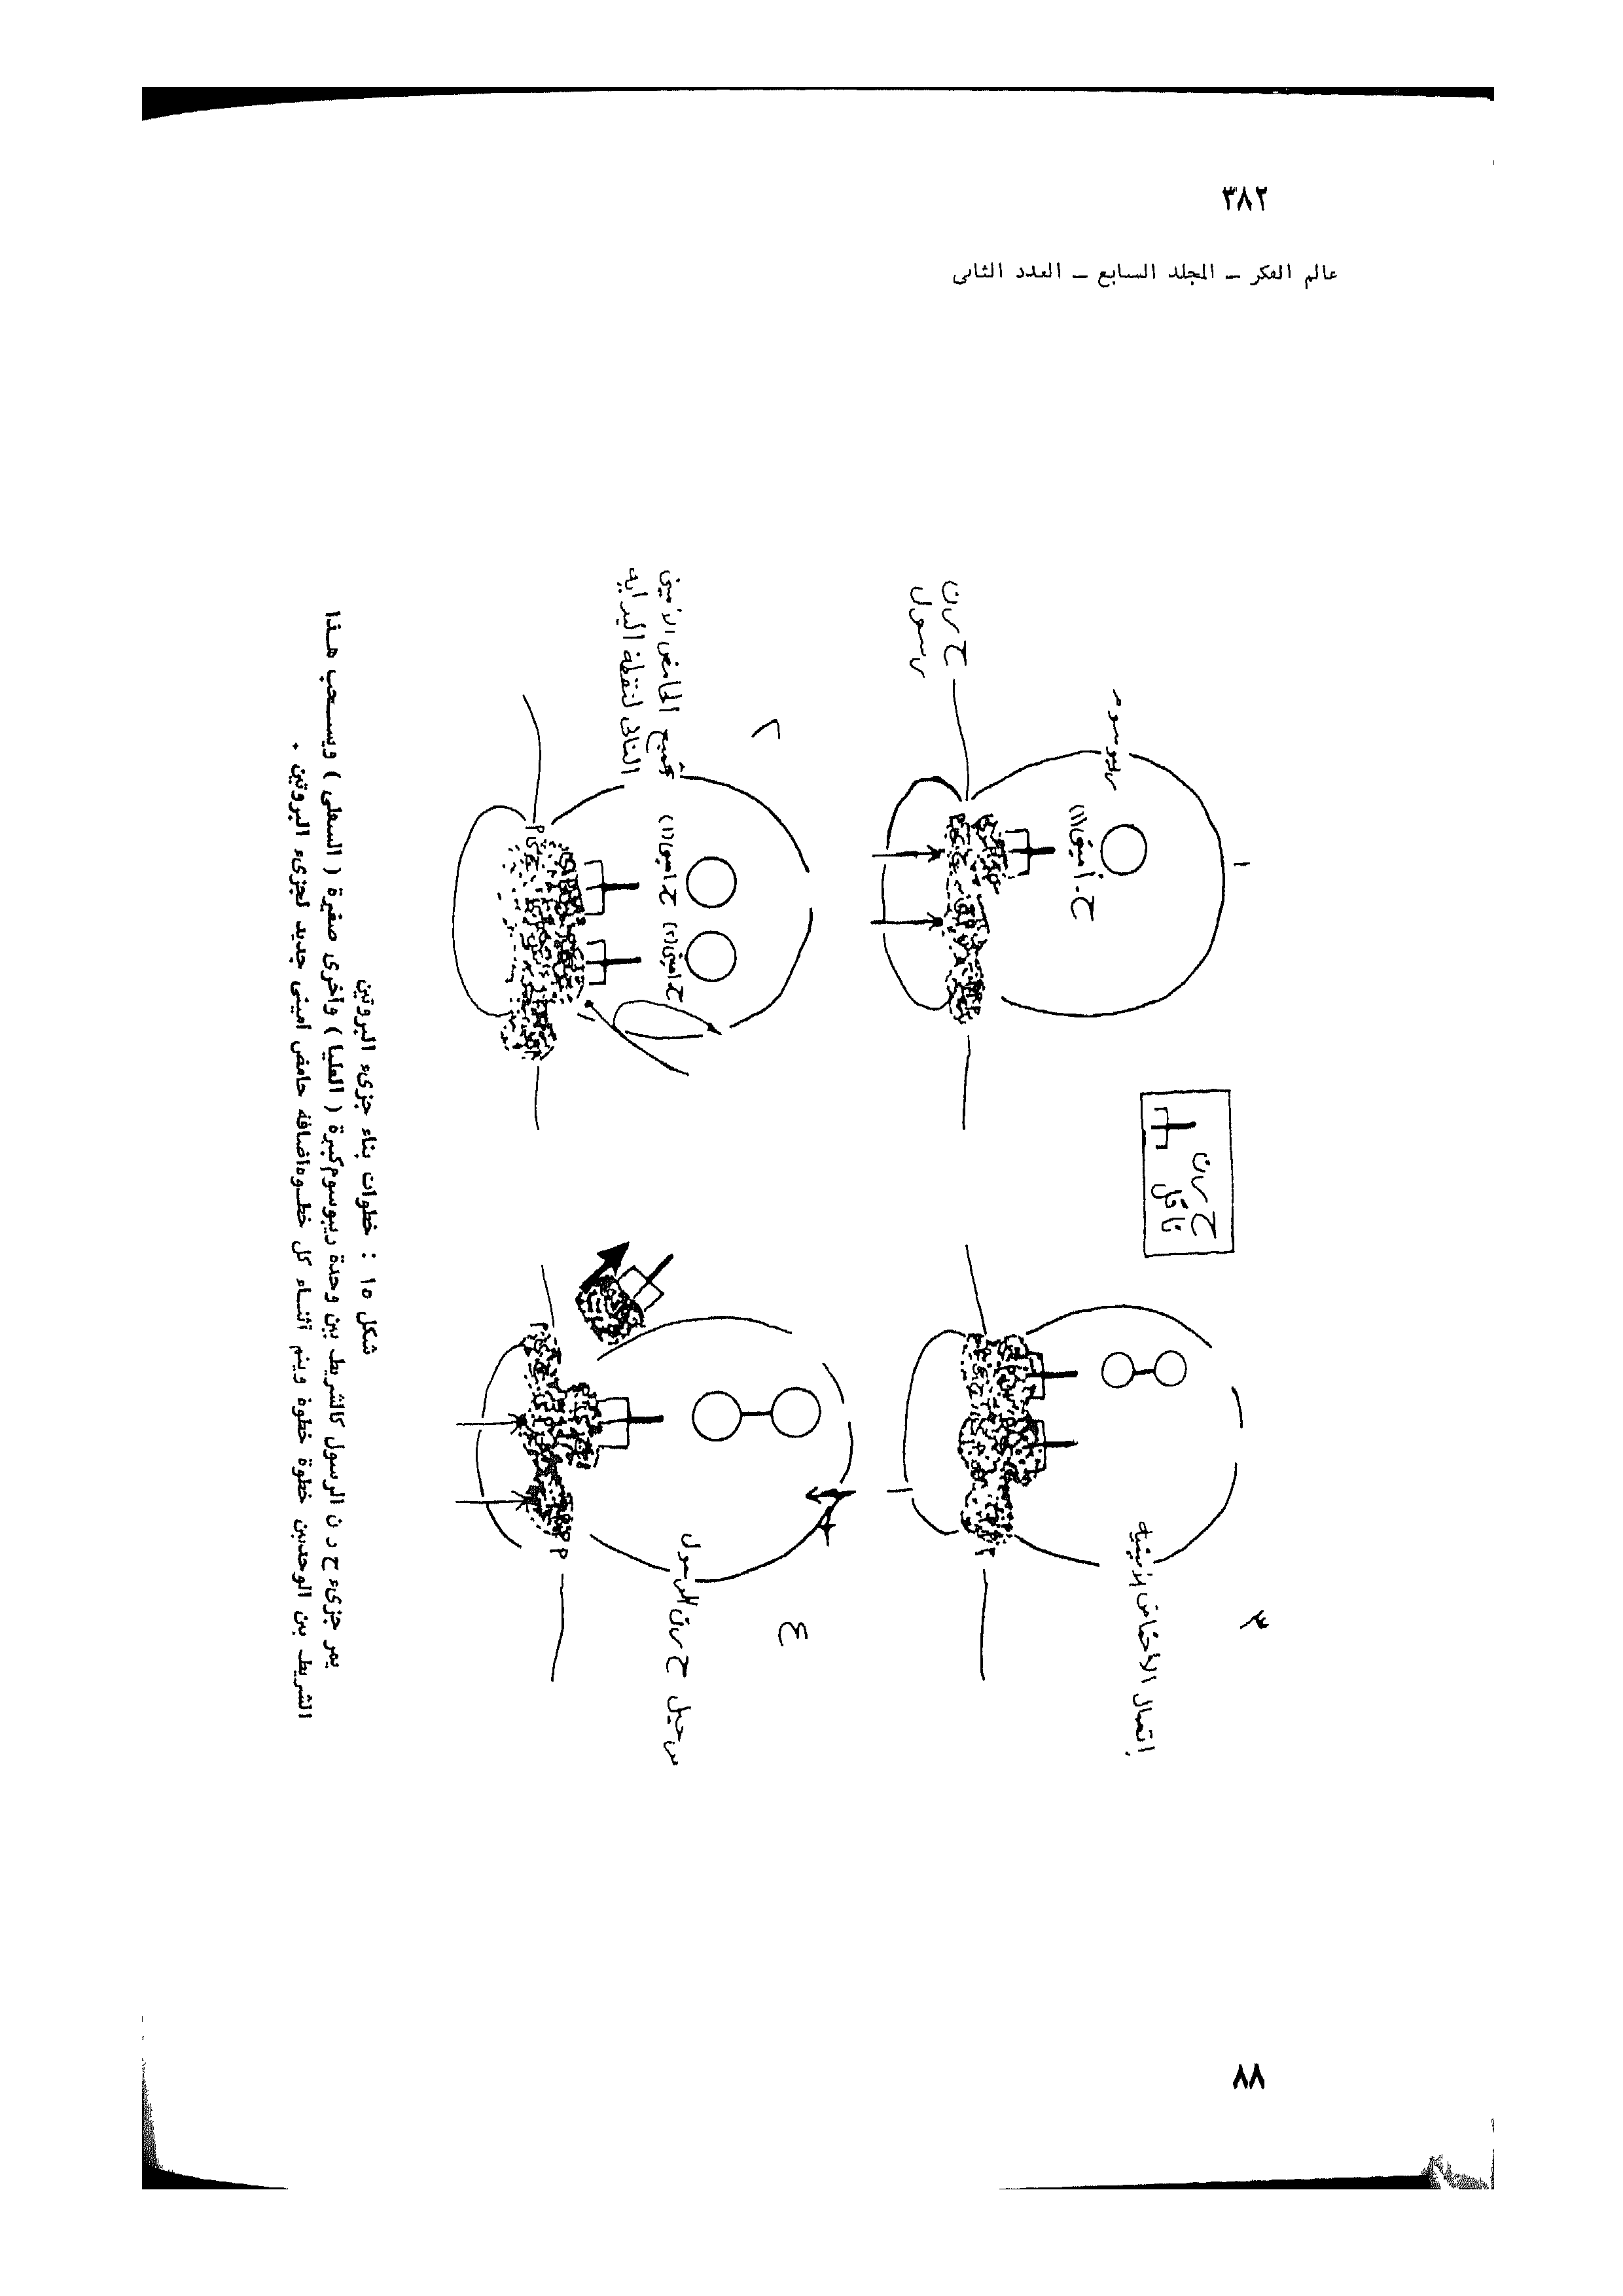 ٣٨٢
عالم الفكر – المجلد السابع – العدد الثانى
١
ريبوسوم
ح. أمينى (١)
ح ر ن
رسول
٢
الحامض الامينى
الثانى لنقطة البداية
ح امينى (١)
ح امينى (٢)
ح ر ن
ناقل
٣
إتصال الأحماض الامينية
٤
رحيل ح ر ن الرسول
شكل ١٥ : خطوات بناء جزىء البروتين
يمر جزىء ح ر ن الرسول كالشريط بين وحدة ريبوسوم كبيرة ( العليا ) وأخرى صغيرة ( السفلى ) ويسحب هذا
الشريط بين الوحدتين خطوة خطوة ويتم أثناء كل خطوه اضافه حامض امينى جديد لجزىء البروتين .
٨٨